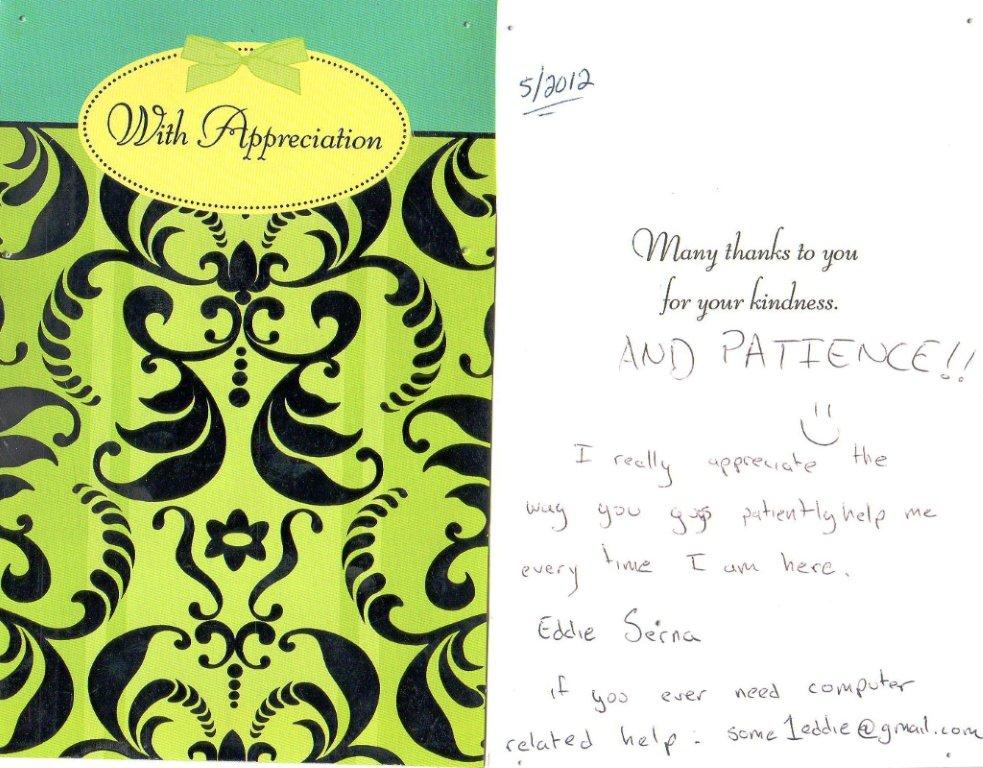 With Appreciation
5/2012
Many thanks to you
for your kindness.
AND PATIENCE!!
I really appreciate the
way you guys patiently help me
every time I am here.
Eddie Serna
if you ever need computer
related help: some1eddie@gmail.com